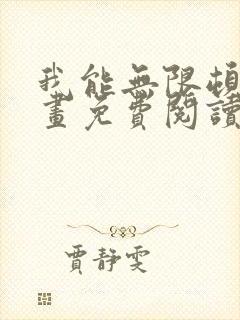 我能無限頓
畫免費閱讀
賈靜雯